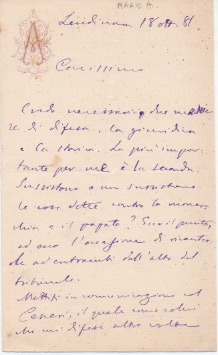 MARIO A.
AM
Lendinara 18 ott. 81
Carissimo
Credo necessario due
re di difesa, la giuridica
e la storica. La più impor
tante per me è la seconda.
Sussistono o non sussistono
le cose dette contro la monar
chia e il papato? Ecco il punto,
ed ecco l'occasione di
ad entrambi dall'alto del
tribunale.
Mettiti in comunicazione col
Ceneri, il quale
che mi difese altra volta